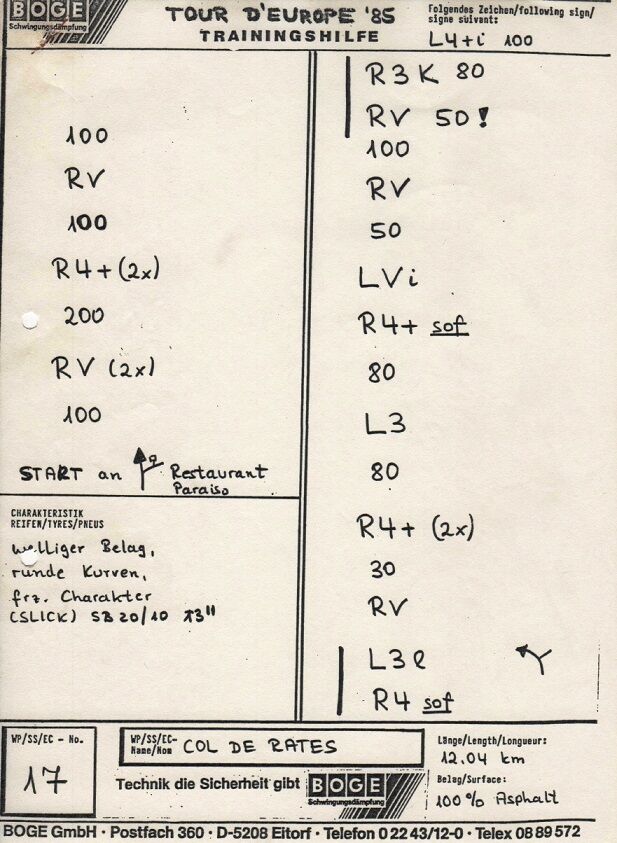 BOGE
Schwingungsdämpfung
TOUR D'EUROPE '85
TRAININGSHILFE
Folgendes Zeichen/following sign/
signe suivant:
L4+i 100
100
RV
100
R4+(2x)
200
RV (2x)
100
START an Restaurant
Paraiso
CHARAKTERISTIK
REIFEN/TYRES/PNEUS
welliger Belag,
runde Kurven,
frz. Charakter
(SLICK) SB 20/10 13"
R3K 80
RV 50!
100
RV
50
LVi
R4+ sof
80
L3
80
R4+ (2x)
30
RV
L3l
R4 sof
WP/SS/EC - No.
17
WP/SS/EC-
Name/Nom COL DE RATES
Technik die Sicherheit gibt
BOGE
Schwingungsdämpfung
Länge/Length/Longueur:
12.04 km
Belag/Surface:
100% Asphalt
BOGE GmbH · Postfach 360 · D-5208 Eitorf · Telefon 0 22 43/12-0 · Telex 08 89 572